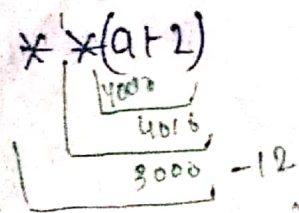 * *(a+2)
4000
4016
3000 -12